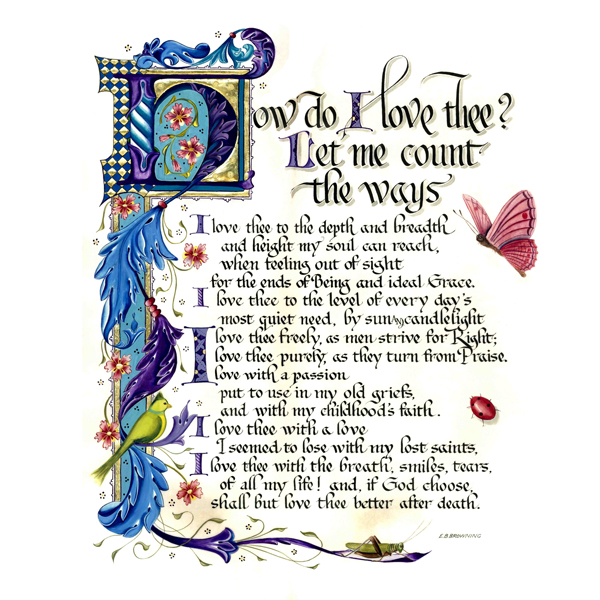 How do I love thee?
Let me count
the ways
I love thee to the depth and breadth
and height my soul can reach,
when feeling out of sight
for the ends of Being and ideal Grace.
I love thee to the level of every day's
most quiet need, by sun and candlelight
I love thee freely, as men strive for Right;
love thee purely, as they turn from Praise.
love with a passion
put to use in my old griefs,
and with my childhood's faith.
I love thee with a love
I seemed to lose with my lost saints,
I love thee with the breath, smiles, tears,
of all my life! and, if God choose,
shall but love thee better after death.
E.B. BROWNING